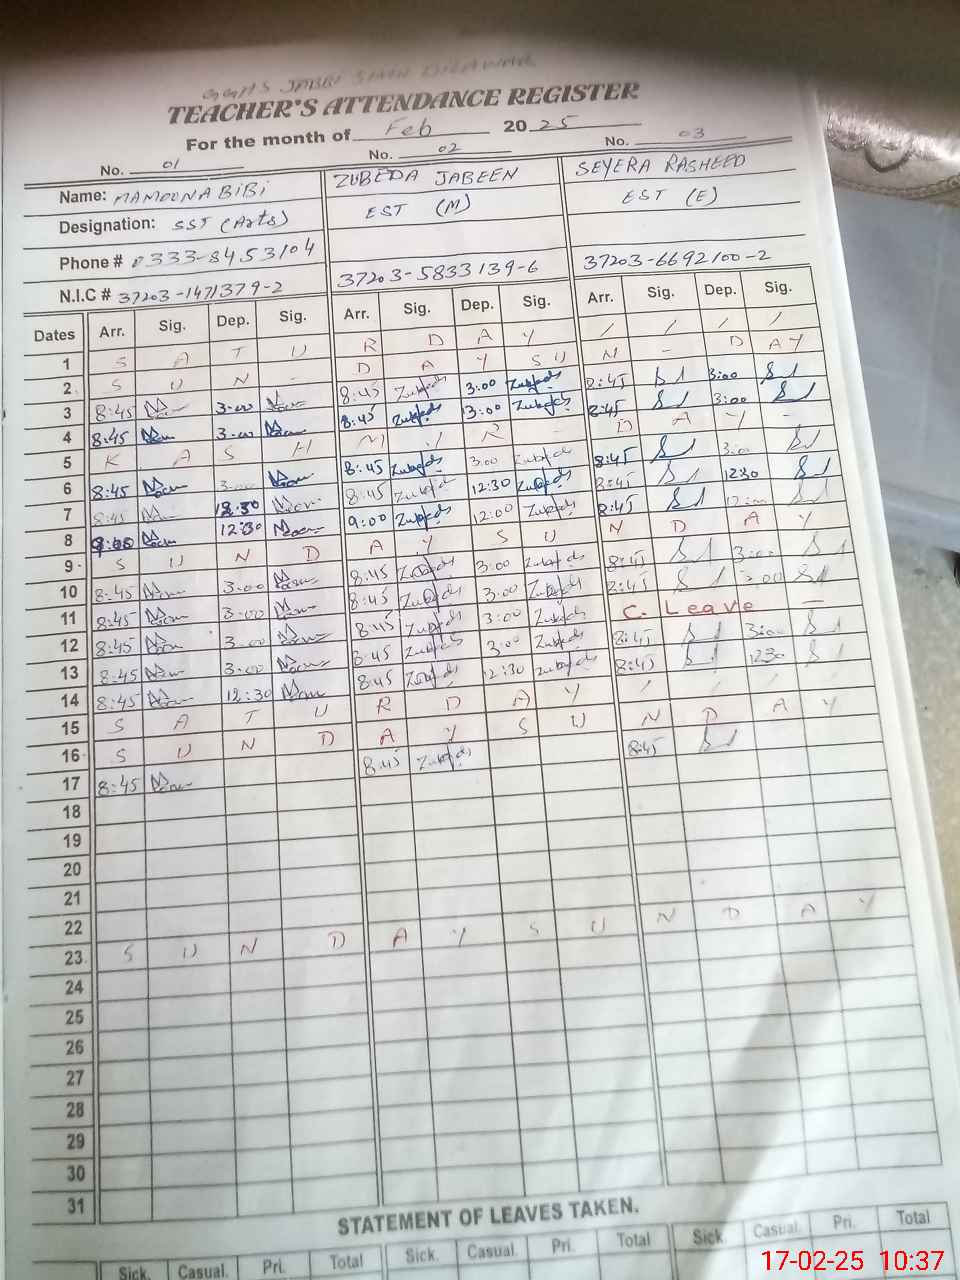 GGHS JABBI SHAH DILAWAR
TEACHER'S ATTENDANCE REGISTER
For the month of Feb 20 25
No. 01 No. 02 No. 03
Name: MAMOONA BIBI ZUBEDA JABEEN SEYERA RASHEED
Designation: SST (Arts) EST (M) EST (E)
Phone # 0333-8453104
N.I.C # 37203-1471379-2 37203-5833139-6 37203-6692100-2
Dates Arr. Sig. Dep. Sig. Arr. Sig. Dep. Sig. Arr. Sig. Dep. Sig.
1 S A T U R D A Y / / / /
2 S U N - D A Y S U N - D A Y
3 8:45 3:00 8:45 Zubeda 3:00 Zubeda 8:45 3:00
4 8:45 3:00 8:45 Zubeda 3:00 Zubeda 8:45 3:00
5 K A S H M I R - D A Y -
6 8:45 3:00 8:45 Zubeda 3:00 Zubeda 8:45 3:00
7 8:45 12:30 8:45 Zubeda 12:30 Zubeda 8:45 12:30
8 9:00 12:30 9:00 Zubeda 12:00 Zubeda 8:45 12:00
9 S U N D A Y S U N D A Y
10 8:45 3:00 8:45 Zubeda 3:00 Zubeda 8:45 3:00
11 8:45 3:00 8:45 Zubeda 3:00 Zubeda 8:45 3:00
12 8:45 3:00 8:45 Zubeda 3:00 Zubeda C. Leave -
13 8:45 3:00 8:45 Zubeda 3:00 Zubeda 8:45 3:00
14 8:45 12:30 8:45 Zubeda 12:30 Zubeda 8:45 1230
15 S A T U R D A Y / / / /
16 S U N D A Y S U N D A Y
17 8:45 8:45 Zubeda 8:45
18
19
20
21
22
23 S U N D A Y S U N D A Y
24
25
26
27
28
29
30
31
STATEMENT OF LEAVES TAKEN.
Sick. Casual. Pri. Total Sick. Casual. Pri. Total Sick. Casual. Pri. Total
17-02-25 10:37